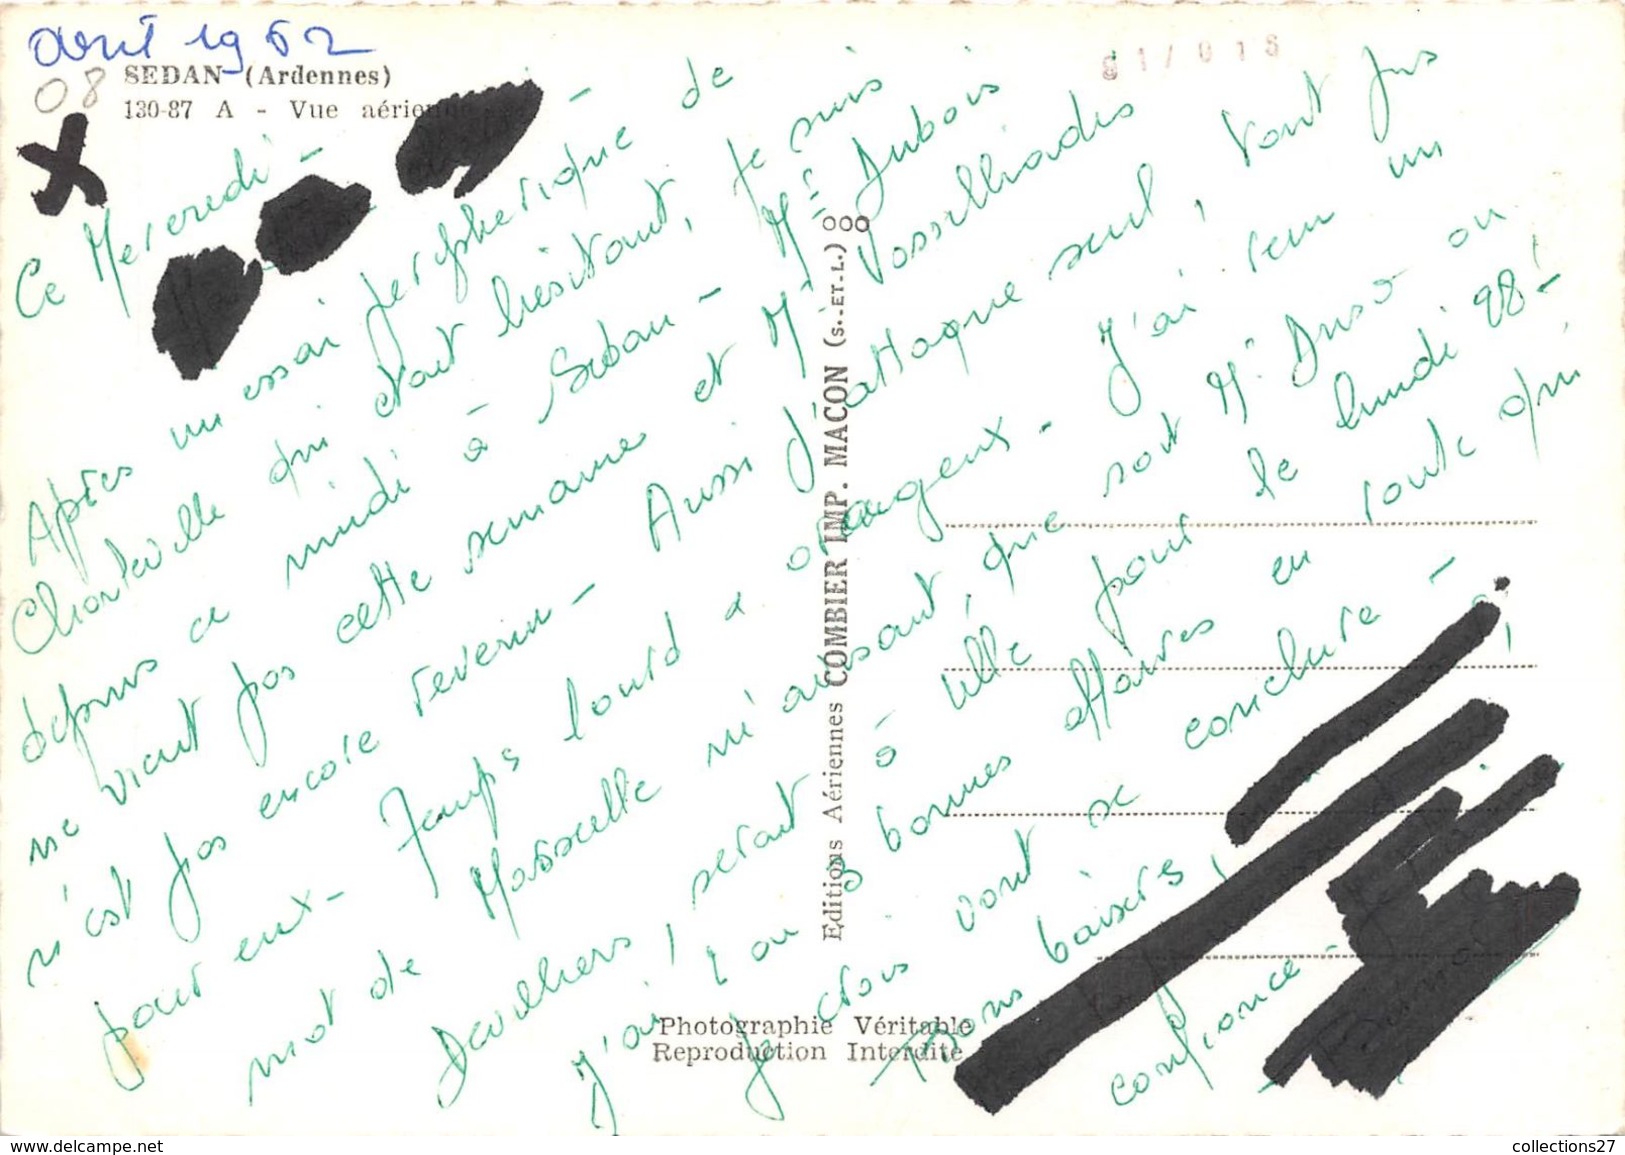 avril 1962
08
SEDAN (Ardennes)
130-87 A - Vue aérienne
Ce Mercredi -
Après un essai peryphérique de
Charleville qui était hésitant, je suis
depuis ce midi à Sedan - Mr Dubois
ne vient pas cette semaine et Mr Vassilliades
n'est pas encore revenu - Aussi j'attaque seul, tant pis
pour eux - Temps lourd & orageux - J'ai reçu un
mot de Marseille m'avisant que sont Mr Duso ou
Davilliers, serait à Lille pour le lundi 28! -
J'ai 2 ou 3 bonnes affaires en route qui
je crois vont se conclure -
Bons baisers,
confiance -
Editions Aériennes COMBIER IMP. MACON (S.-ET-L.)
Photographie Véritable
Reproduction Interdite
collections27